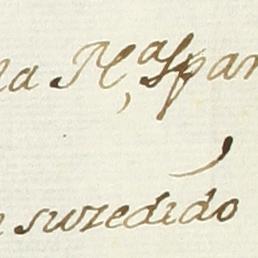 la R.ª Span
suzedido